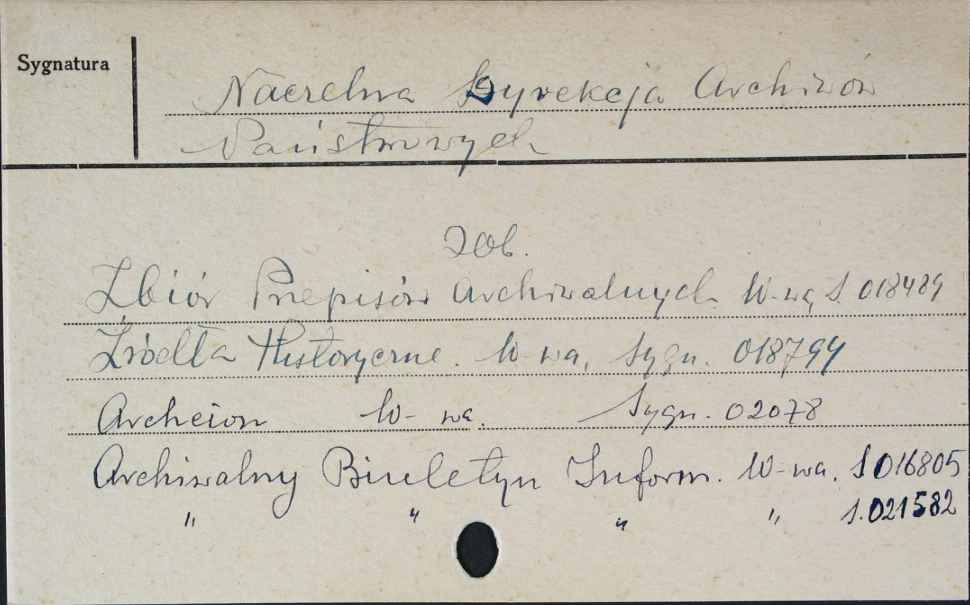 Sygnatura
Naczelna Dyrekcja Archiwów
Państwowych
Zob.
Zbiór Przepisów Archiwalnych W-wa S. 018489
Źródła Historyczne. W-wa, Sygn. 018794
Archeion W-wa. Sygn. 02078
Archiwalny Biuletyn Inform. W-wa. S 016805
" " " " S. 021582